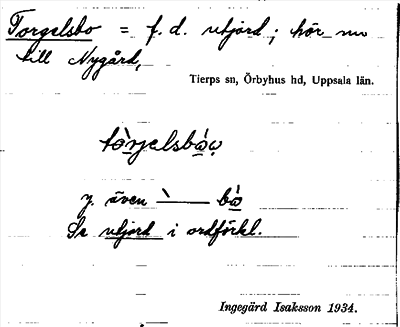 Torgelsbo = f. d. utjord; hör nu
till Nygård,
Tierps sn, Örbyhus hd, Uppsala län.
y. även
Se utjord i ordförkl.
Ingegärd Isaksson 1934.